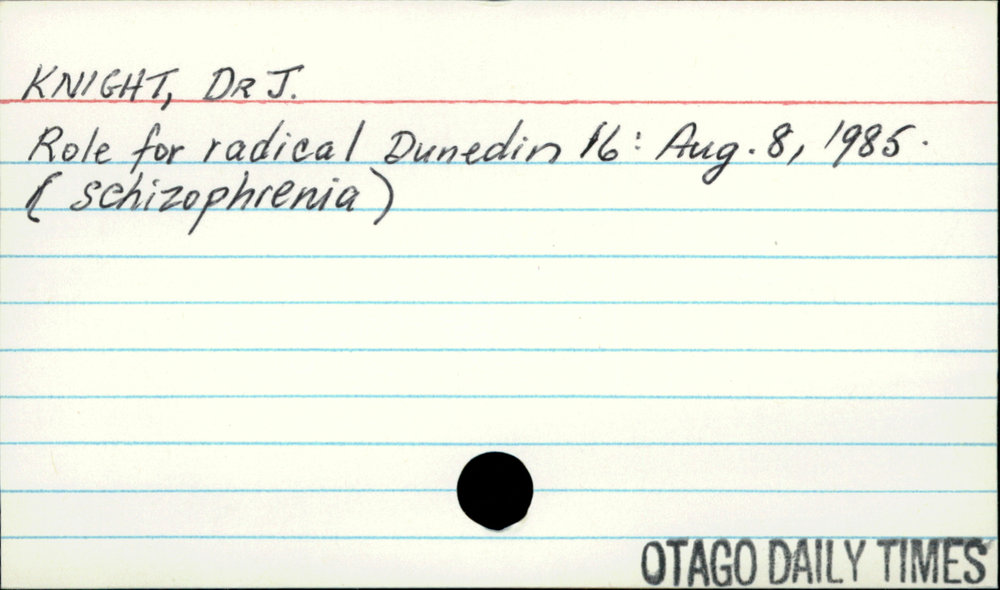 KNIGHT, DR J.
Role for radical Dunedin 16: Aug. 8, 1985.
(schizophrenia)
OTAGO DAILY TIMES